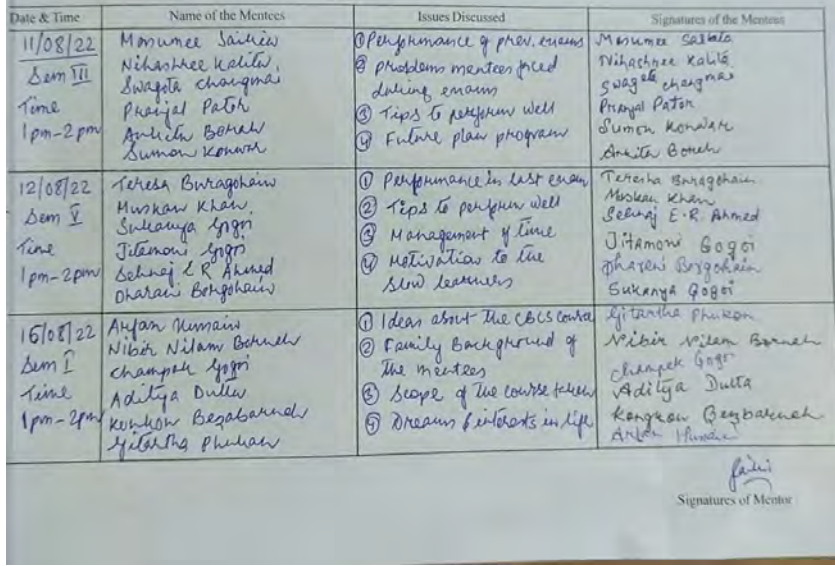 Date & Time
Name of the Mentees
Issues Discussed
Signatures of the Mentees
11/08/22
Sem III
Time
1pm-2pm
Monumee Saikia
Nihashree Kalita
Swagota Changmai
Pranjal Pator
Ankita Borah
Sumon Konwar
① Performance of prev. exams
② problems mentees faced
during exams
③ Tips to perform well
④ Future plan program
Monumee Saikia
Nihashree Kalita
Swagata Changmai
Pranjal Pator
Sumon Konwar
Ankita Borah
12/08/22
Sem V
Time
1pm-2pm
Teresa Buragohain
Muskan Khan
Sukanya Gogoi
Jitamoni Gogoi
Sehnaj E R Ahmed
Dharani Borgohain
① Performance in last exam
② Tips to perform well
③ Management of time
④ Motivation to the
slow learners
Teresha Buragohain
Muskan Khan
Sehnaj E.R. Ahmed
Jitamoni Gogoi
Dharani Borgohain
Sukanya Gogoi
16/08/22
Sem I
Time
1pm-2pm
Arfan Hussain
Nibir Nilam Boruah
Champak Gogoi
Aditya Dutta
Konkon Bezabaruah
Gitartha Phukan
① Ideas about the CBCS course
② Family Background of
the mentees
③ Scope of the course
④ Dreams & interests in life
Gitartha Phukon
Nibir Nilam Boruah
Champak Gogoi
Aditya Dutta
Kongkon Bezbaruah
Arfan
Signatures of Mentor